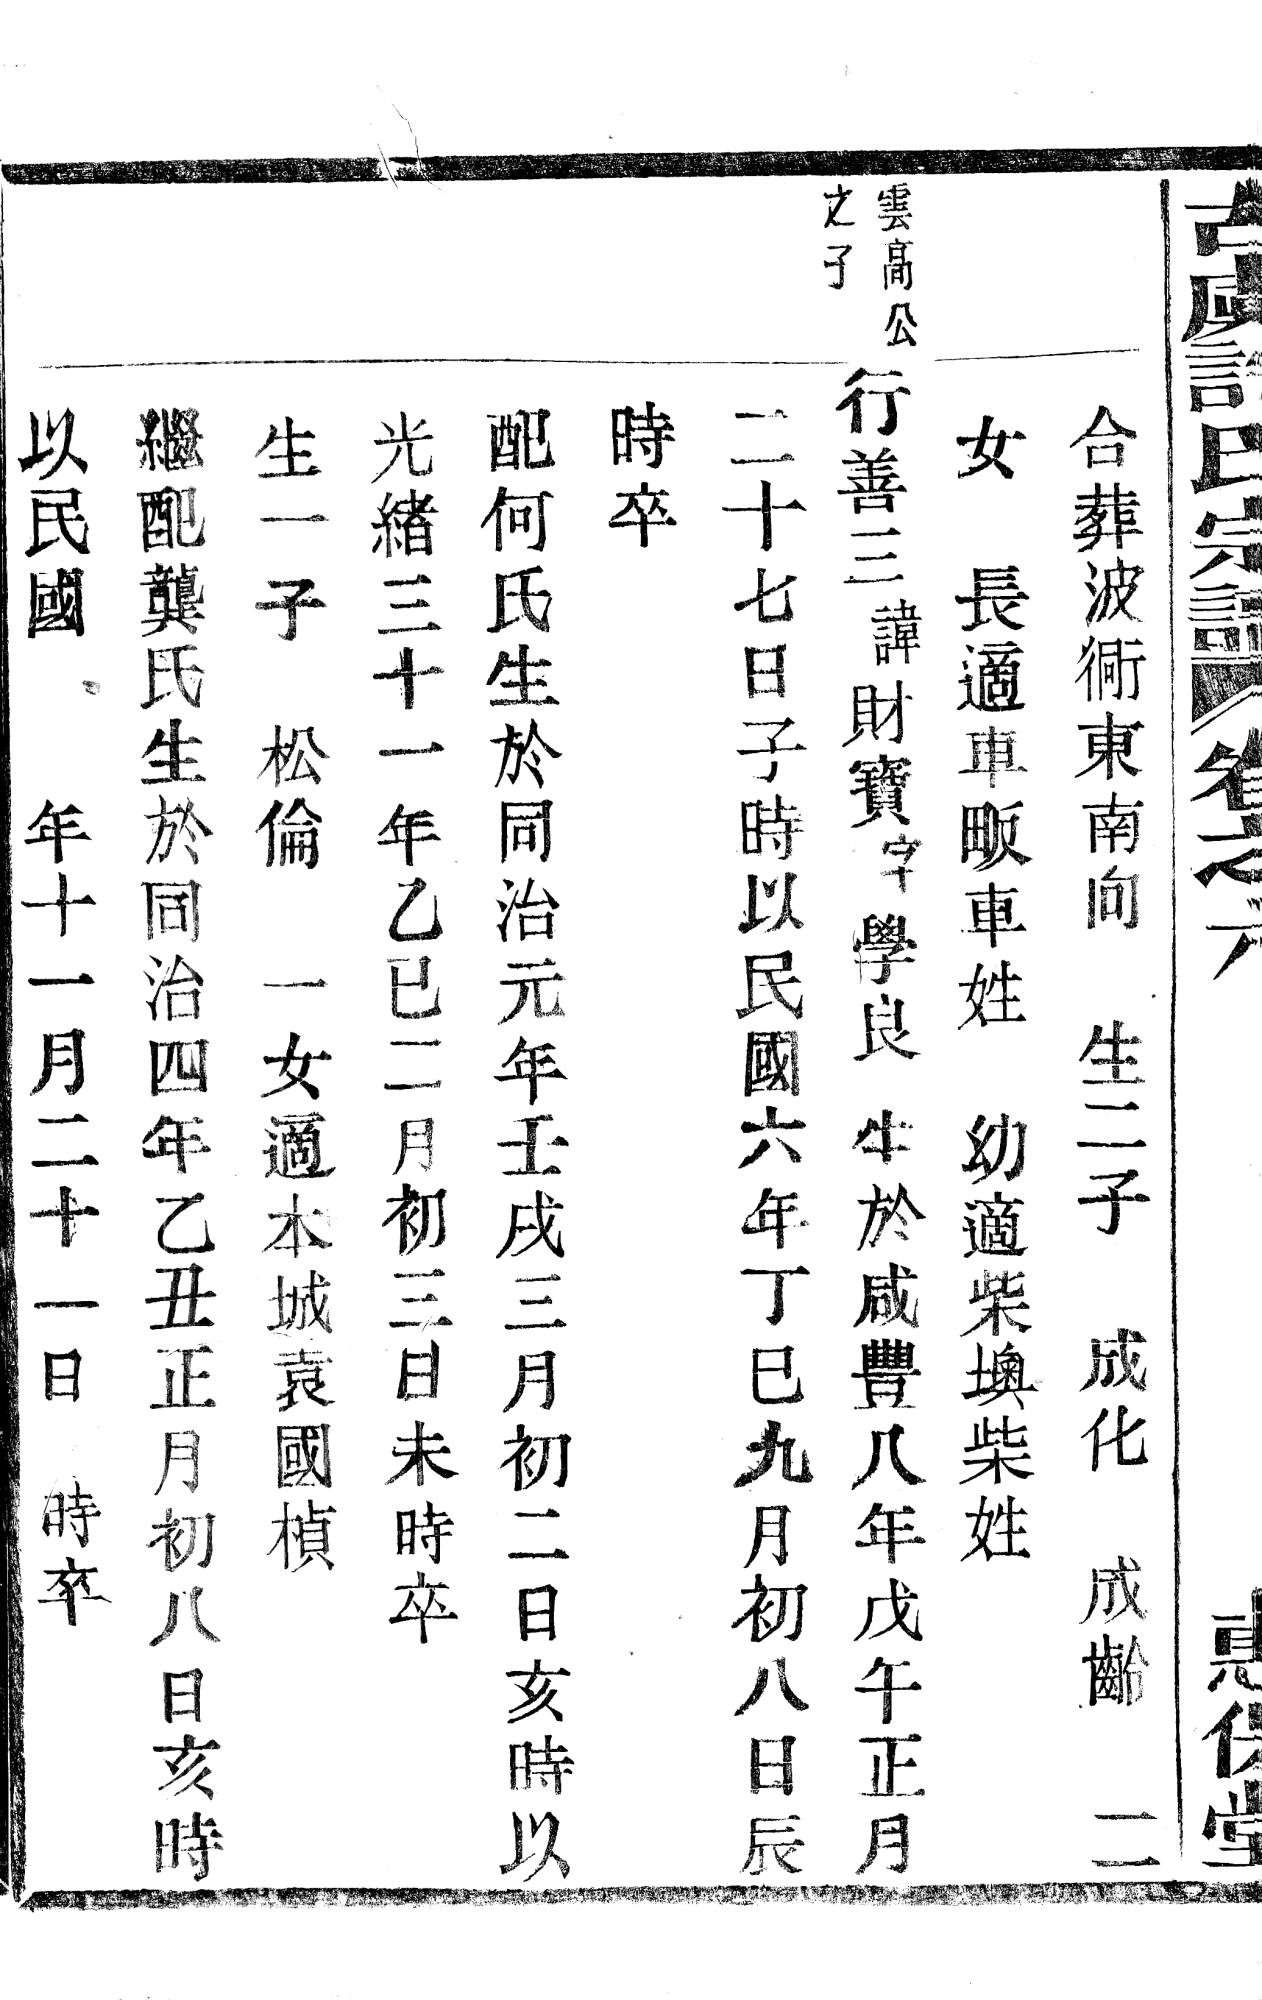 古虞許氏宗譜 卷之六
惠保堂
合葬波衕東南向 生二子 成化 成齡 二
女 長適車畈車姓 幼適柴墺柴姓
雲高公
之子
行善三諱財寶字學良 生於咸豐八年戊午正月
二十七日子時以民國六年丁巳九月初八日辰
時卒
配何氏生於同治元年壬戌三月初二日亥時以
光緒三十一年乙巳二月初三日未時卒
生一子 松倫 一女適本城袁國楨
繼配龔氏生於同治四年乙丑正月初八日亥時
以民國、 年十一月二十一日 時卒